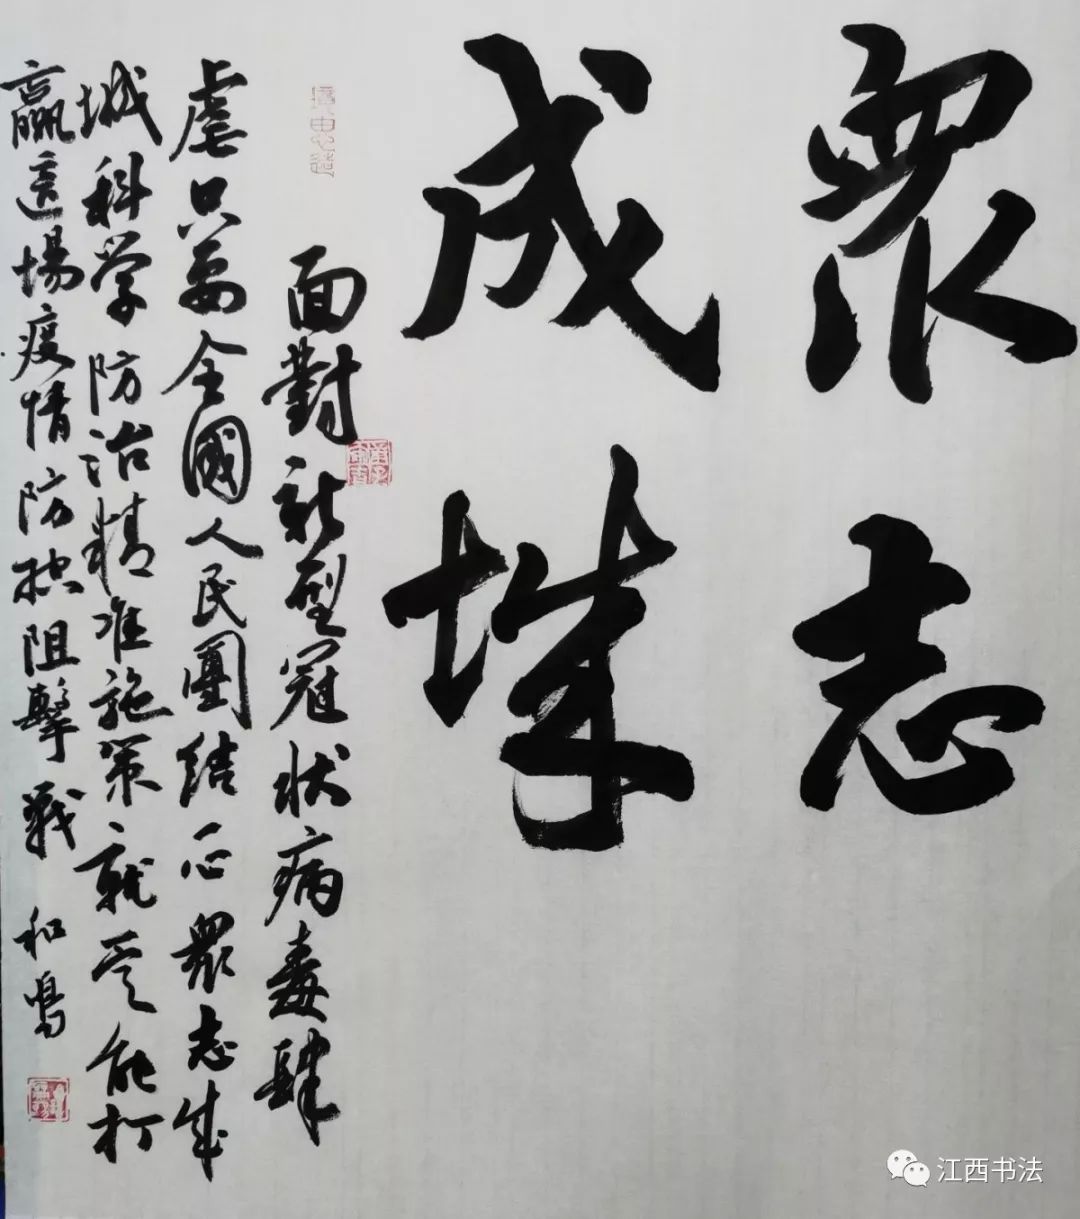 眾志
成城
面對新型冠状病毒肆
虐只要全國人民團结一心眾志成
城科学防治精准施策就一定能打
贏這場疫情防控阻擊戰
和鳴
江西书法